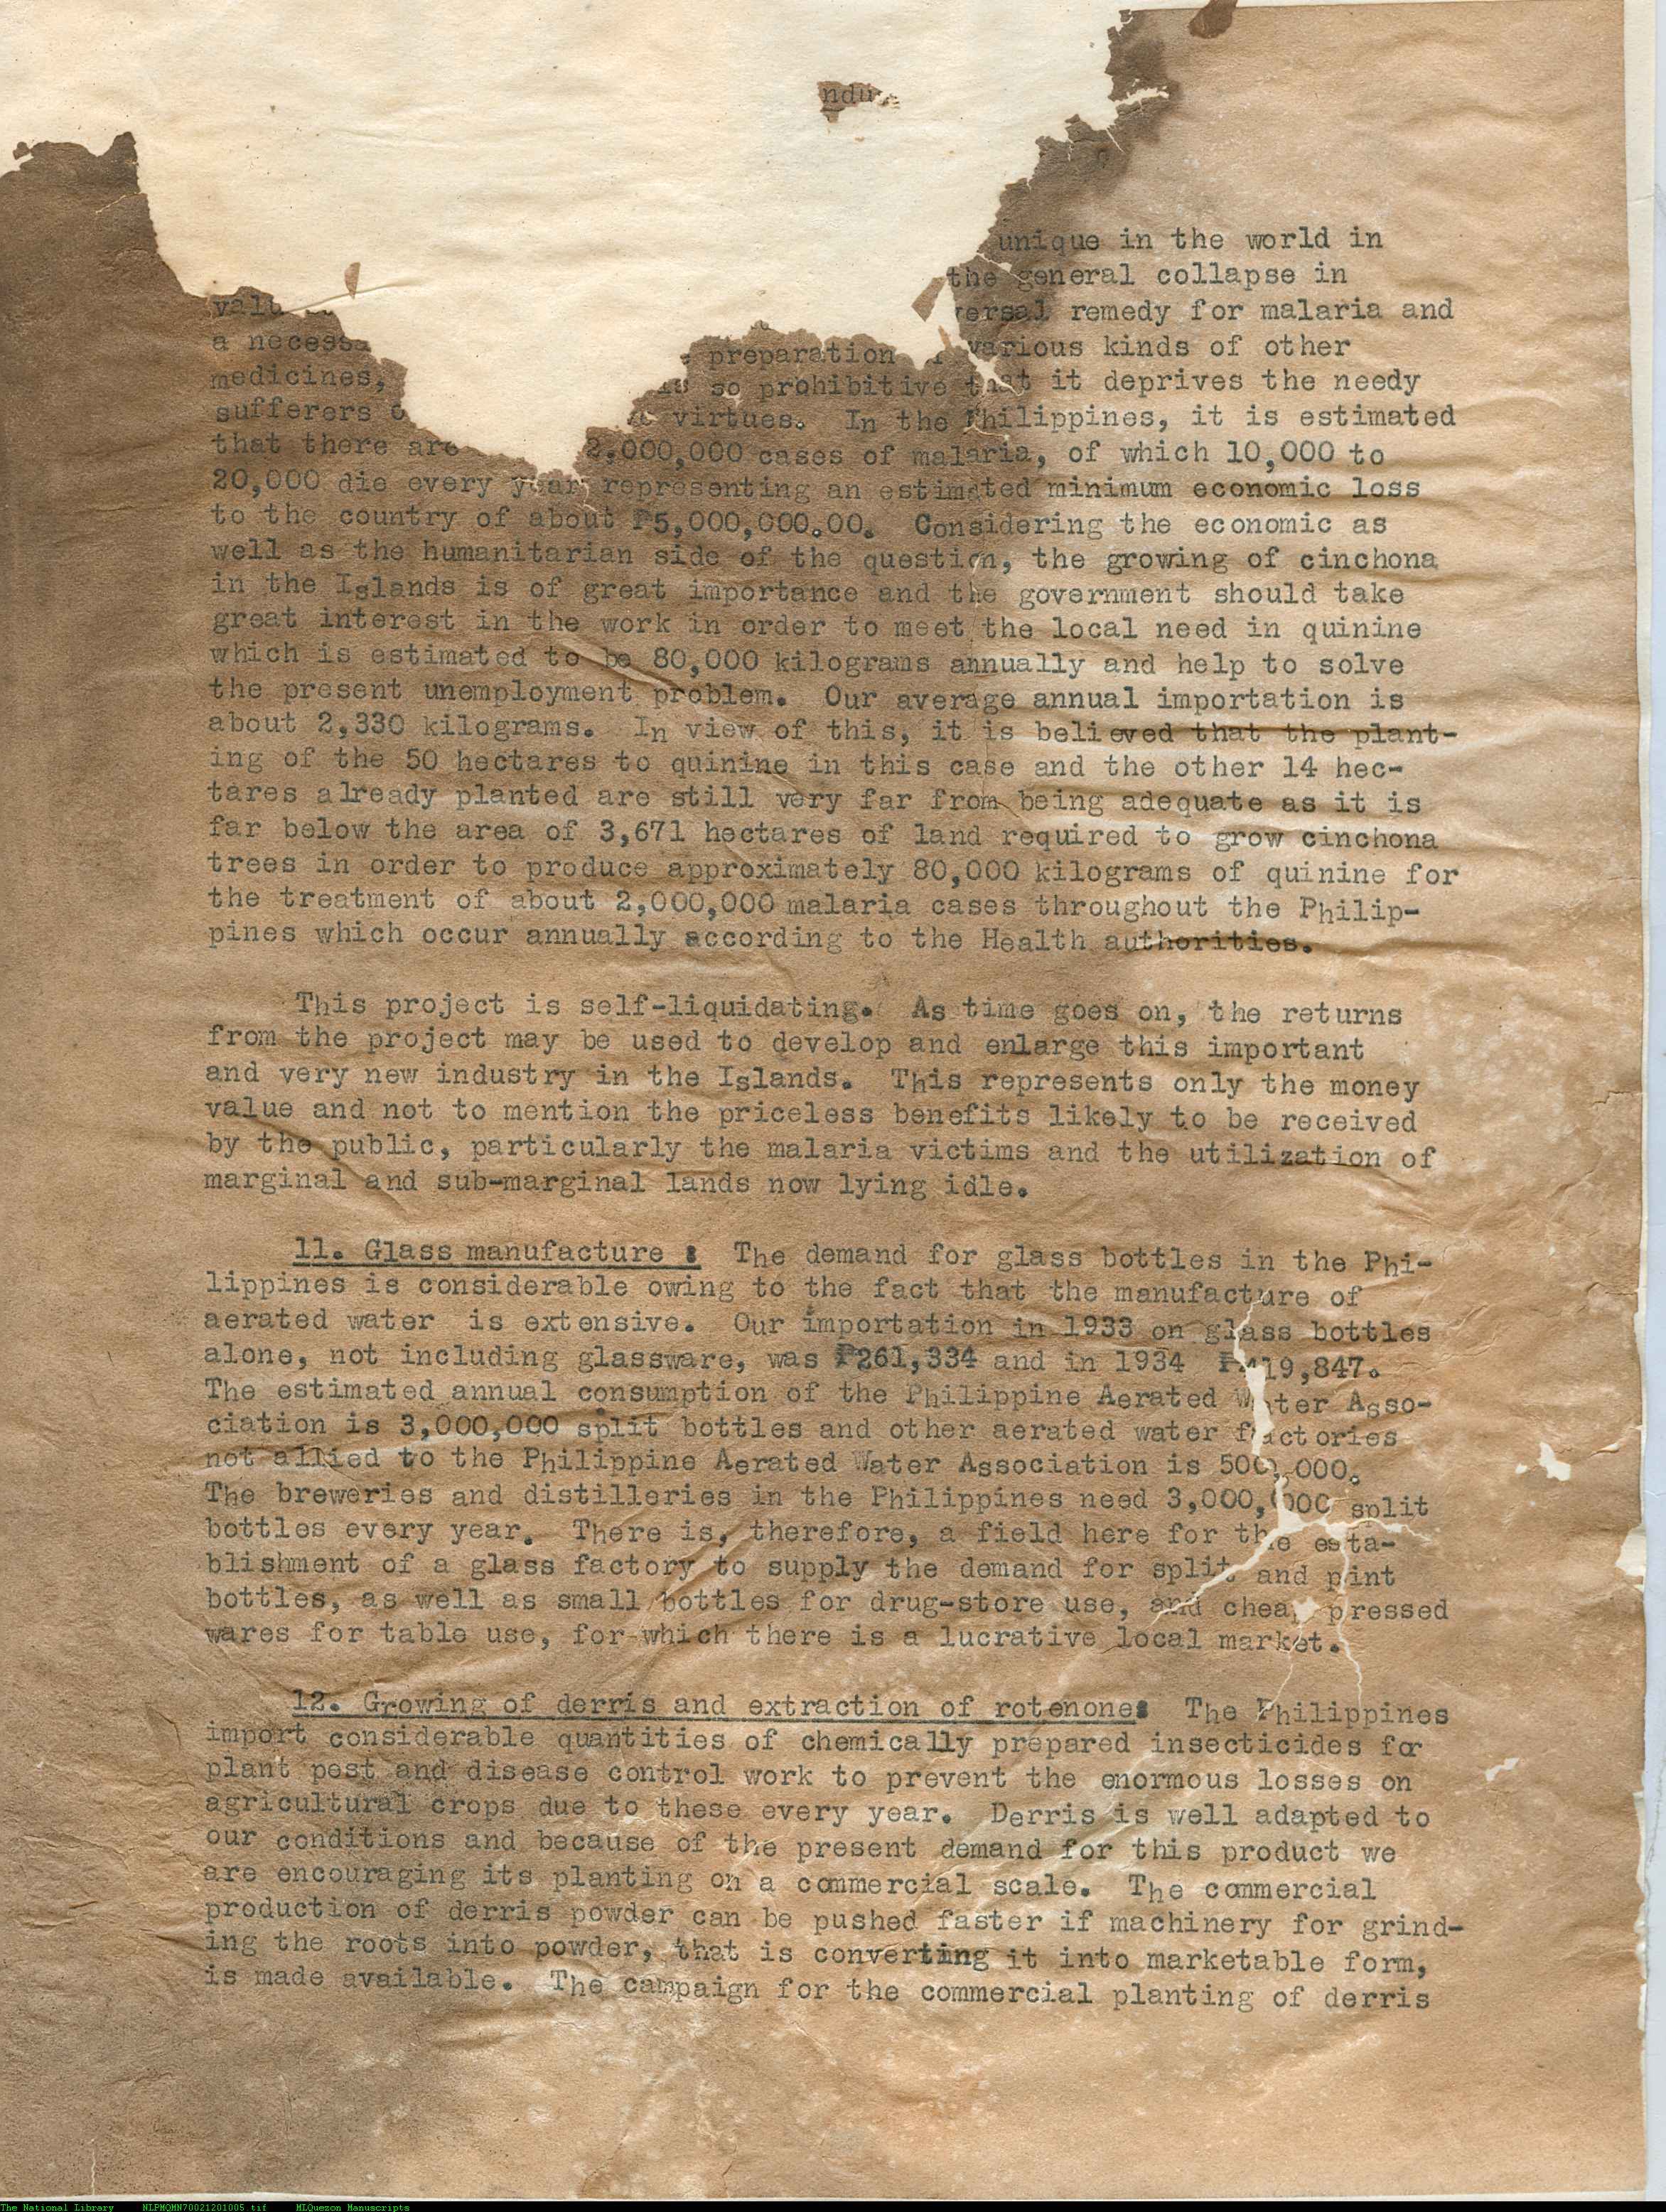 unique in the world in
the general collapse in
remedy for malaria and
a preparation various kinds of other
medicines, is so prohibitive that it deprives the needy
sufferers virtues. In the Philippines, it is estimated
that there are 2,000,000 cases of malaria, of which 10,000 to
20,000 die every year representing an estimated minimum economic loss
to the country of about ₱5,000,000.00. Considering the economic as
well as the humanitarian side of the question, the growing of cinchona
in the Islands is of great importance and the government should take
great interest in the work in order to meet the local need in quinine
which is estimated to be 80,000 kilograms annually and help to solve
the present unemployment problem. Our average annual importation is
about 2,330 kilograms. In view of this, it is believed that the plant-
ing of the 50 hectares to quinine in this case and the other 14 hec-
tares already planted are still very far from being adequate as it is
far below the area of 3,671 hectares of land required to grow cinchona
trees in order to produce approximately 80,000 kilograms of quinine for
the treatment of about 2,000,000 malaria cases throughout the Philip-
pines which occur annually according to the Health authorities.
This project is self-liquidating. As time goes on, the returns
from the project may be used to develop and enlarge this important
and very new industry in the Islands. This represents only the money
value and not to mention the priceless benefits likely to be received
by the public, particularly the malaria victims and the utilization of
marginal and sub-marginal lands now lying idle.
11. Glass manufacture : The demand for glass bottles in the Phi-
lippines is considerable owing to the fact that the manufacture of
aerated water is extensive. Our importation in 1933 on glass bottles
alone, not including glassware, was ₱261,334 and in 1934 ₱419,847.
The estimated annual consumption of the Philippine Aerated Water Asso-
ciation is 3,000,000 split bottles and other aerated water factories
not allied to the Philippine Aerated Water Association is 500,000.
The breweries and distilleries in the Philippines need 3,000,000 split
bottles every year. There is, therefore, a field here for the esta-
blishment of a glass factory to supply the demand for split and pint
bottles, as well as small bottles for drug-store use, and cheap pressed
wares for table use, for which there is a lucrative local market.
12. Growing of derris and extraction of rotenone: The Philippines
import considerable quantities of chemically prepared insecticides for
plant pest and disease control work to prevent the enormous losses on
agricultural crops due to these every year. Derris is well adapted to
our conditions and because of the present demand for this product we
are encouraging its planting on a commercial scale. The commercial
production of derris powder can be pushed faster if machinery for grind-
ing the roots into powder, that is converting it into marketable form,
is made available. The campaign for the commercial planting of derris
The National Library NLPMQMN70021201005.tif MLQuezon Manuscripts